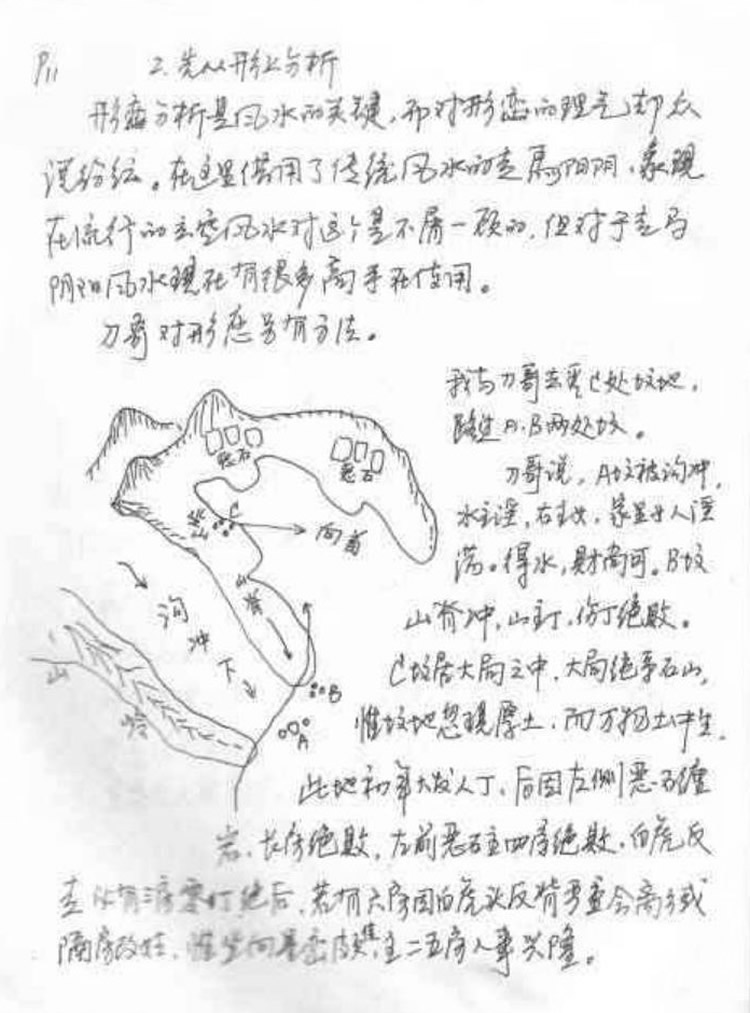 P11
2.先从形上分析
形峦分析是风水的关键,而对形峦的理气却众
说纷纭。在这里借用了传统风水的走马阴阳,象现
在流行的玄空风水对这个是不屑一顾的,但对于走马
阴阳风水现在有很多高手在使用。
刀哥对形峦另有方法。
我与刀哥去看C处坟地,
路过A、B两处坟。
刀哥说,A坟被沟冲,
水主淫,右主女,家里女人淫
荡。得水,财尚可。B坟
山脊冲,山主丁,伤丁绝败。
C坟居大局之中,大局绝乎石山,
惟坟地忽现厚土,而万物土中生,
此地初年大发人丁,后因左侧恶石缠
岩,长房绝败,左前恶石主四房绝败,白虎反
走 三房零丁绝后,若有六房因白虎头反背严重会离乡或
隔房改姓,惟坐向是峦 主二五房人事兴隆。
恶石
恶石
坐山
C
向首
山脊
沟冲下
山岭
B
A